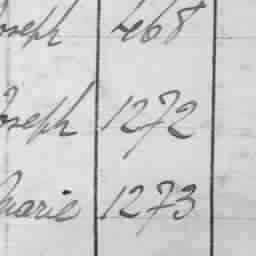 Joseph 468
Joseph 1272
Marie 1273